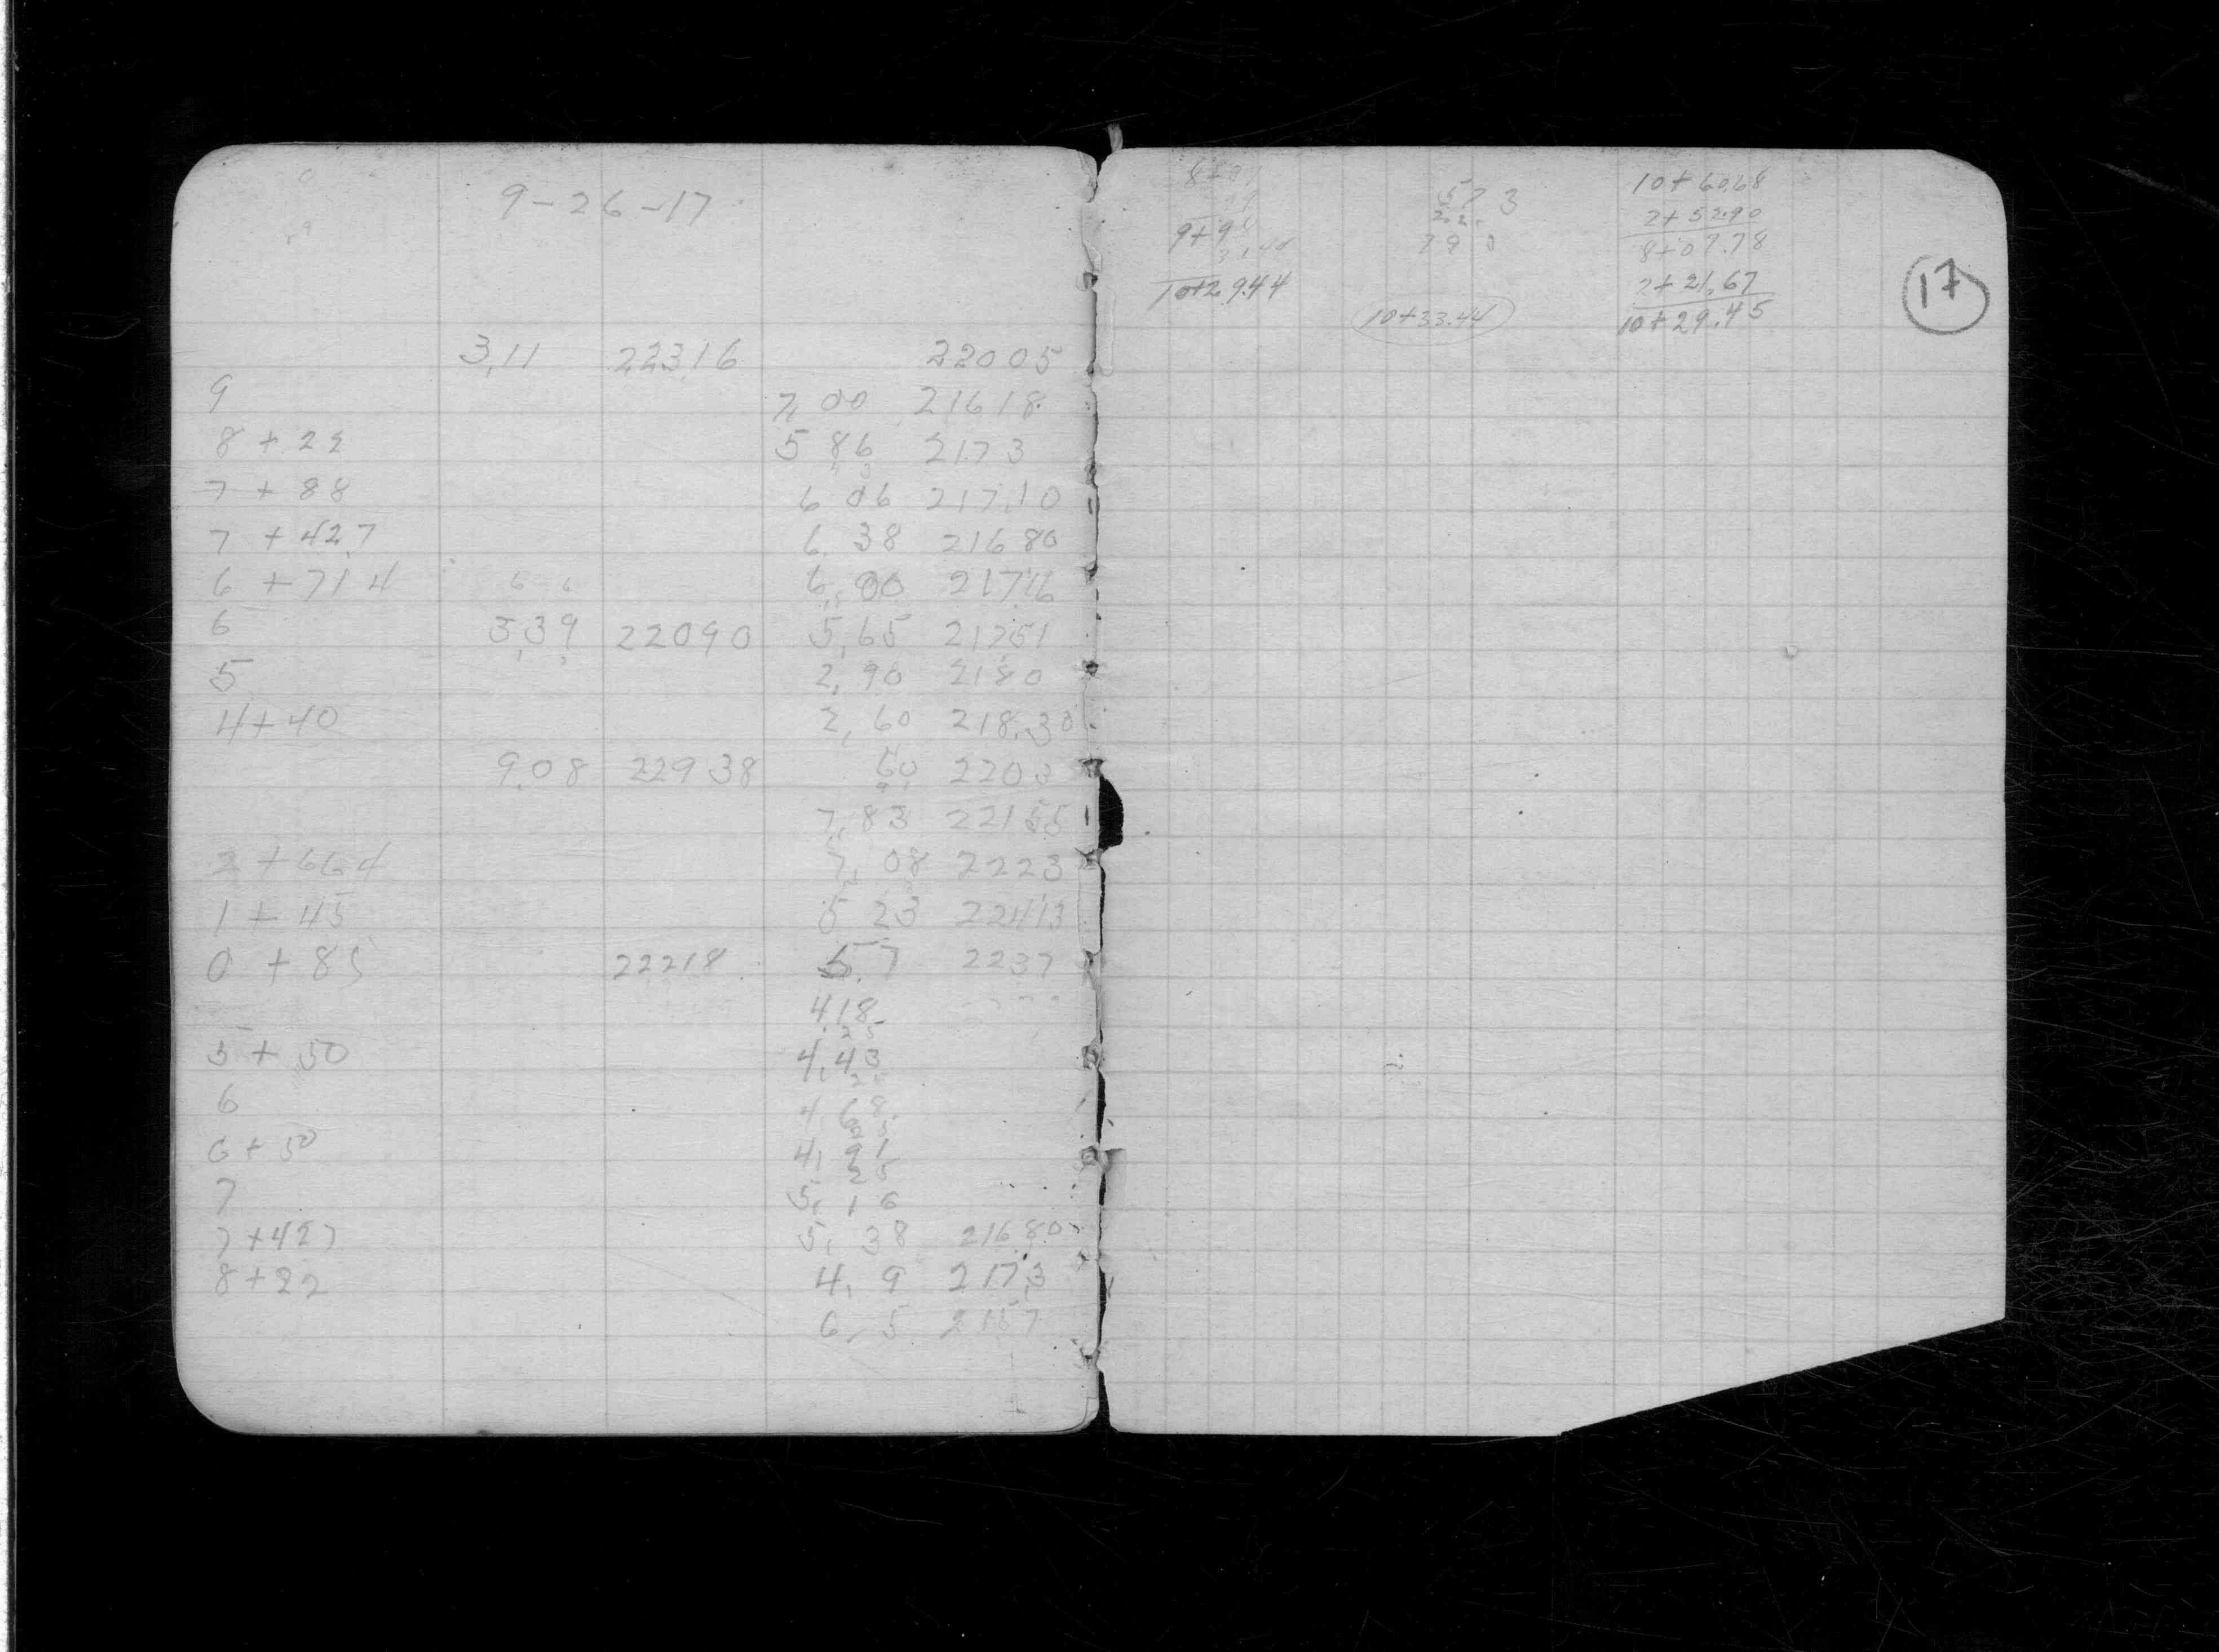 9-26-17
3,11 223,16 22005
9 7,00 21618
8 + 22 5 86 2173
7 + 88 6 06 217,10
7 + 42.7 6 38 21680
6 + 714 6,00 21716
6 3,39 22090 5,65 21751
5 2,90 2180
4+40 2,60 218.30
9.08 22938 60 2203
7,83 22155
2 + 664 7, 08 2223
1 + 45 5 23 22413
0 + 85 22218 5.7 2237
4,18
25
5 + 50 4,43
6 4 68
6 + 50 4, 91
25
7 5, 16
7+427 5, 38 21680
8+22 4, 9 217,3
6, 5 2157
573
9+9
10+29.44
10+33.44
10+60.68
2+52.90
8+07.78
2+21.67
10+29.45
17